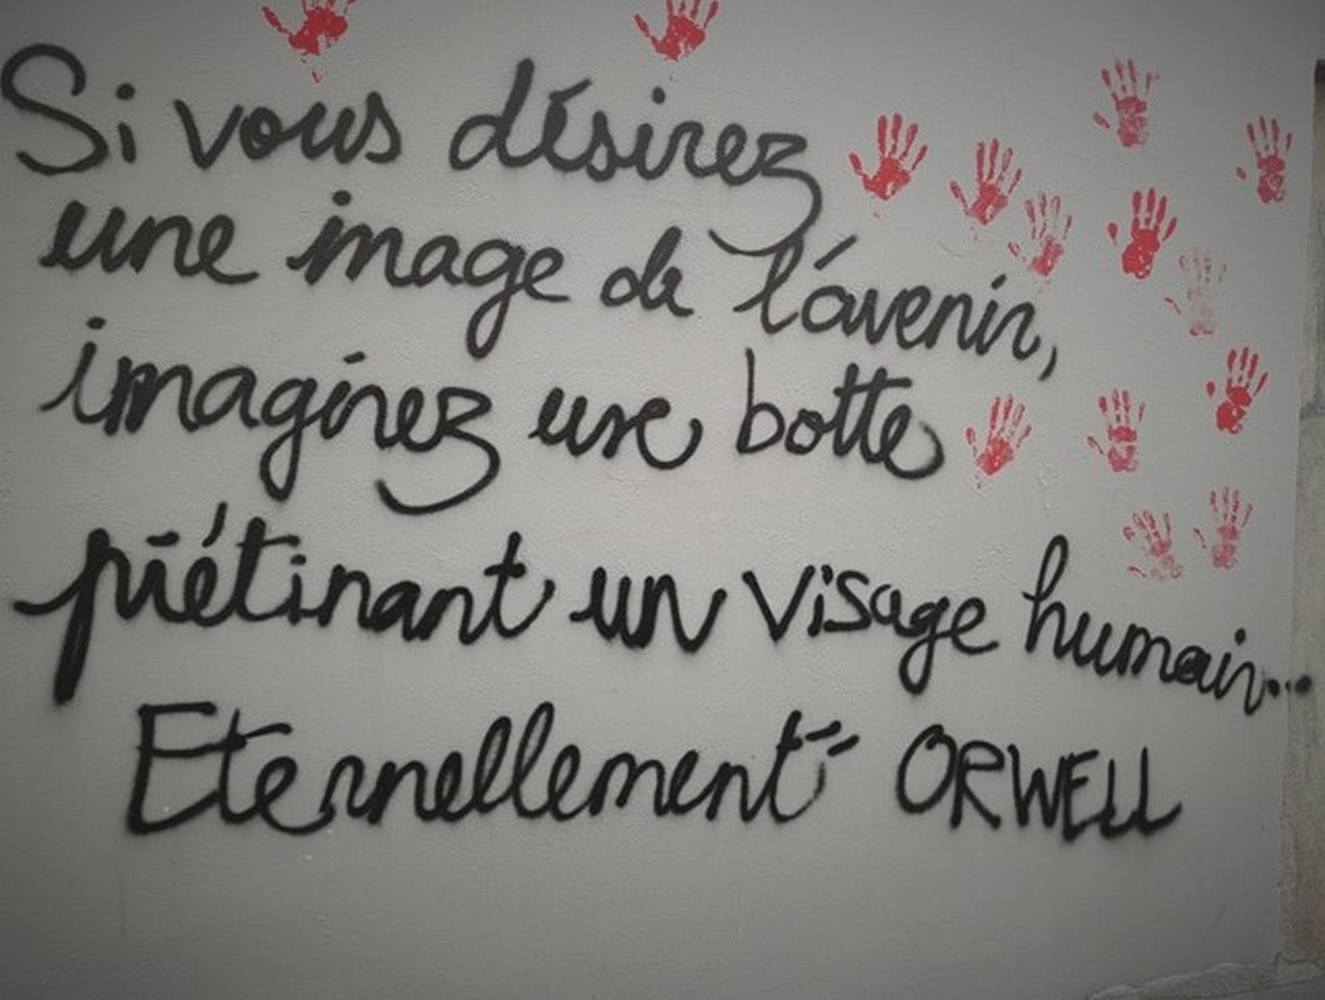 Si vous désirez
une image de l'avenir,
imaginez une botte
piétinant un visage humain...
Eternellement" ORWELL